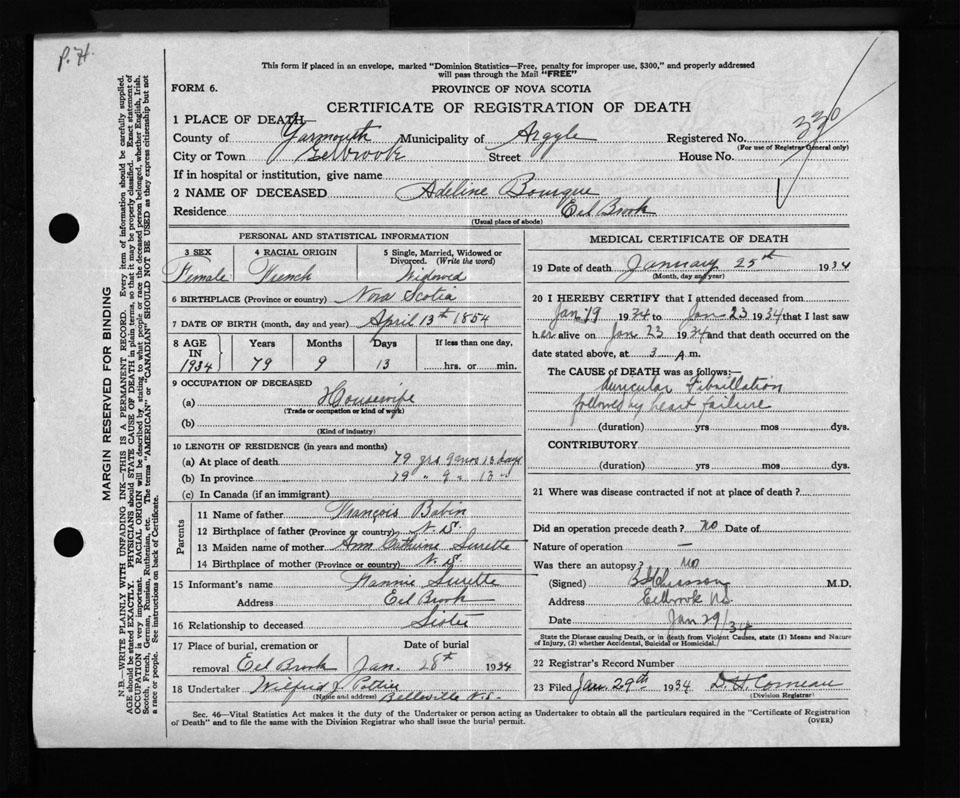 P.H.
This form if placed in an envelope, marked "Dominion Statistics—Free, penalty for improper use, $300," and properly addressed
will pass through the Mail "FREE"
FORM 6.
PROVINCE OF NOVA SCOTIA
CERTIFICATE OF REGISTRATION OF DEATH
1 PLACE OF DEATH
County of Yarmouth Municipality of Argyle Registered No. 330
(For use of Registrar General only)
City or Town Eelbrook Street House No.
If in hospital or institution, give name
2 NAME OF DECEASED Adeline Bourque
Residence Eel Brook
(Usual place of abode)
PERSONAL AND STATISTICAL INFORMATION
3 SEX
Female
4 RACIAL ORIGIN
French
5 Single, Married, Widowed or
Divorced. (Write the word)
Widowed
6 BIRTHPLACE (Province or country) Nova Scotia
7 DATE OF BIRTH (month, day and year) April 13th 1854
8 AGE Years Months Days If less than one day,
IN
1934 79 9 13 hrs. or min.
9 OCCUPATION OF DECEASED
(a) Housewife
(Trade or occupation or kind of work)
(b)
(Kind of industry)
10 LENGTH OF RESIDENCE (in years and months)
(a) At place of death 79 yrs 9 mos 13 days
(b) In province 79 " 9 " 13 "
(c) In Canada (if an immigrant)
Parents
11 Name of father François Babin
12 Birthplace of father (Province or country) N. S.
13 Maiden name of mother Ann Catherine Surette
14 Birthplace of mother (Province or country) N. S.
15 Informant's name Fannie Surette
Address Eel Brook
16 Relationship to deceased Sister
17 Place of burial, cremation or Date of burial
removal Eel Brook Jan. 28th 1934
18 Undertaker Wilfrid J. Pottier
(Name and address) Belleville N.S.
MEDICAL CERTIFICATE OF DEATH
19 Date of death January 25th 1934
(Month, day and year)
20 I HEREBY CERTIFY that I attended deceased from
Jan 19 1934 to Jan 23 1934 that I last saw
her alive on Jan 23 1934 and that death occurred on the
date stated above, at 3 A.m.
The CAUSE of DEATH was as follows:—
Auricular Fibrillation
followed by heart failure
(duration) yrs mos dys.
CONTRIBUTORY
(duration) yrs mos dys.
21 Where was disease contracted if not at place of death?
Did an operation precede death? no Date of
Nature of operation —
Was there an autopsy? no
(Signed) M.D.
Address Eelbrook NS.
Date Jan 29/34
State the Disease causing Death, or in death from Violent Causes, state (1) Means and Nature
of Injury, (2) whether Accidental, Suicidal or Homicidal.
22 Registrar's Record Number
23 Filed Jan 29th 1934 D H Comeau
(Division Registrar)
Sec. 46—Vital Statistics Act makes it the duty of the Undertaker or person acting as Undertaker to obtain all the particulars required in the "Certificate of Registration
of Death" and to file the same with the Division Registrar who shall issue the burial permit. (OVER)
MARGIN RESERVED FOR BINDING
N.B.—WRITE PLAINLY WITH UNFADING INK—THIS IS A PERMANENT RECORD. Every item of information should be carefully supplied.
AGE should be stated EXACTLY. PHYSICIANS should STATE CAUSE OF DEATH in plain terms, so that it may be properly classified. Exact statement of
OCCUPATION is very important. RACIAL ORIGIN will be described by stating to what people or race the deceased person belonged, whether English, Irish,
Scotch, French, German, Russian, Ruthenian, etc. The terms "AMERICAN" or "CANADIAN" SHOULD NOT BE USED as they express citizenship but not
a race or people. See instructions on back of Certificate.